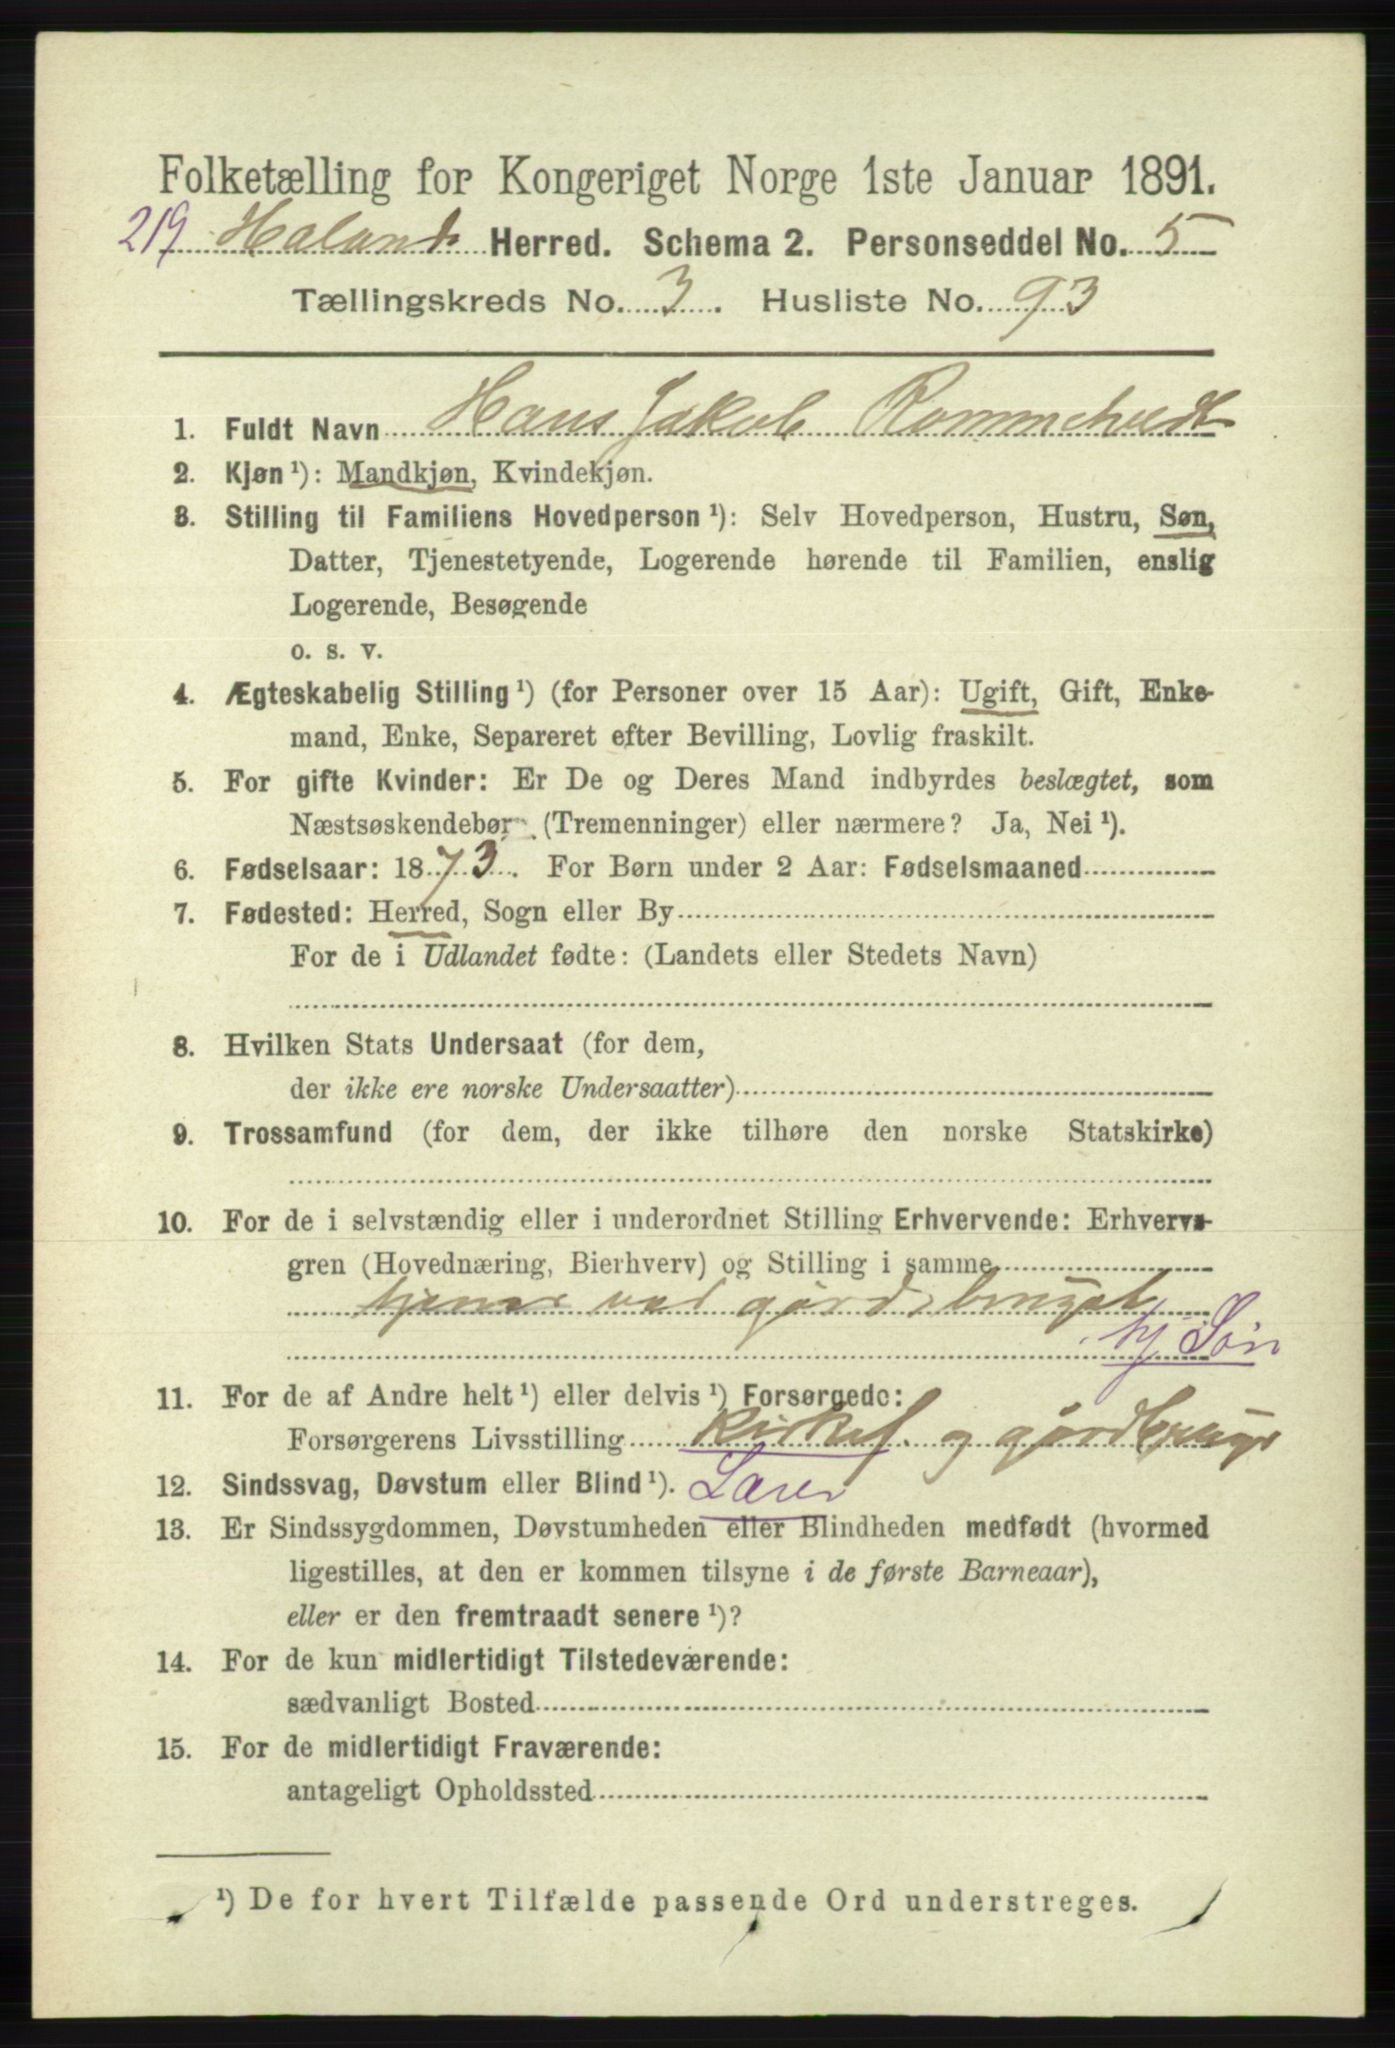 Folketælling for Kongeriget Norge 1ste Januar 1891.
219 Halands Herred. Schema 2. Personseddel No. 5
Tællingskreds No. 3. Husliste No. 93
1. Fuldt Navn Hans Jakob Rommetvedt
2. Kjøn ¹): Mandkjøn, Kvindekjøn.
3. Stilling til Familiens Hovedperson ¹): Selv Hovedperson, Hustru, Søn,
Datter, Tjenestetyende, Logerende hørende til Familien, enslig
Logerende, Besøgende
o. s. v.
4. Ægteskabelig Stilling ¹) (for Personer over 15 Aar): Ugift, Gift, Enke-
mand, Enke, Separeret efter Bevilling, Lovlig fraskilt.
5. For gifte Kvinder: Er De og Deres Mand indbyrdes beslægtet, som
Næstsøskendebørn (Tremenninger) eller nærmere? Ja, Nei ¹).
6. Fødselsaar: 1873. For Børn under 2 Aar: Fødselsmaaned
7. Fødested: Herred, Sogn eller By
For de i Udlandet fødte: (Landets eller Stedets Navn)
8. Hvilken Stats Undersaat (for dem,
der ikke ere norske Undersaatter)
9. Trossamfund (for dem, der ikke tilhøre den norske Statskirke)
10. For de i selvstændig eller i underordnet Stilling Erhvervende: Erhvervs-
gren (Hovednæring, Bierhverv) og Stilling i samme
tjener ved gårdsbruget
hj Søn
11. For de af Andre helt ¹) eller delvis ¹) Forsørgede:
Forsørgerens Livsstilling kirkes. og gårdbruger
12. Sindssvag, Døvstum eller Blind ¹). Lærer
13. Er Sindssygdommen, Døvstumheden eller Blindheden medfødt (hvormed
ligestilles, at den er kommen tilsyne i de første Barneaar),
eller er den fremtraadt senere ¹)?
14. For de kun midlertidigt Tilstedeværende:
sædvanligt Bosted
15. For de midlertidigt Fraværende:
antageligt Opholdssted
¹) De for hvert Tilfælde passende Ord understreges.